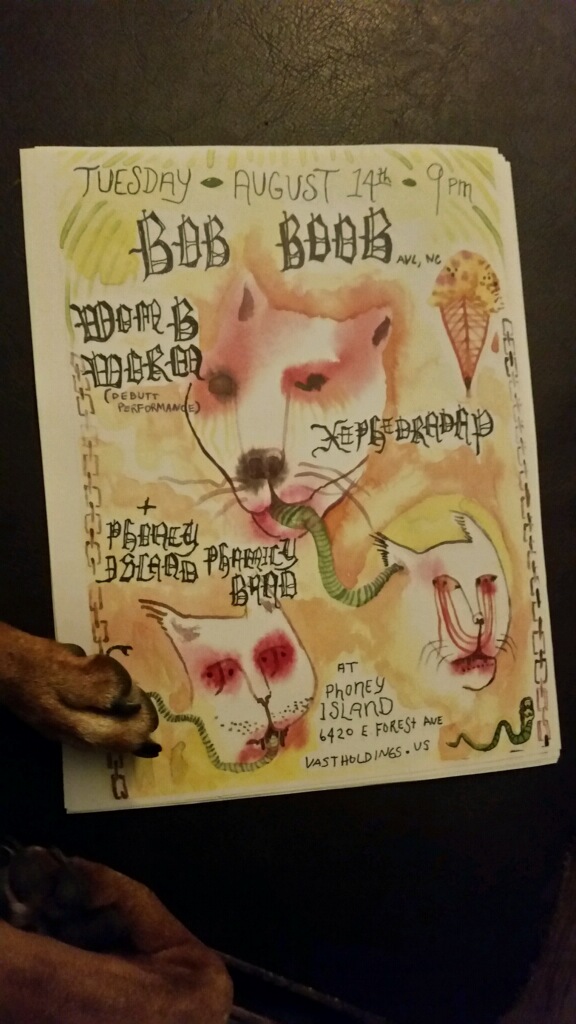 TUESDAY • AUGUST 14th • 9pm
BOB BOOB
AVL, NC
WOMB
WORM
(DEBUTT
PERFORMANCE)
XEPHEDRADAP
+
PHONEY
ISLAND PHAMILY
BAND
AT
PHONEY
ISLAND
6420 E FOREST AVE
VASTHOLDINGS.US